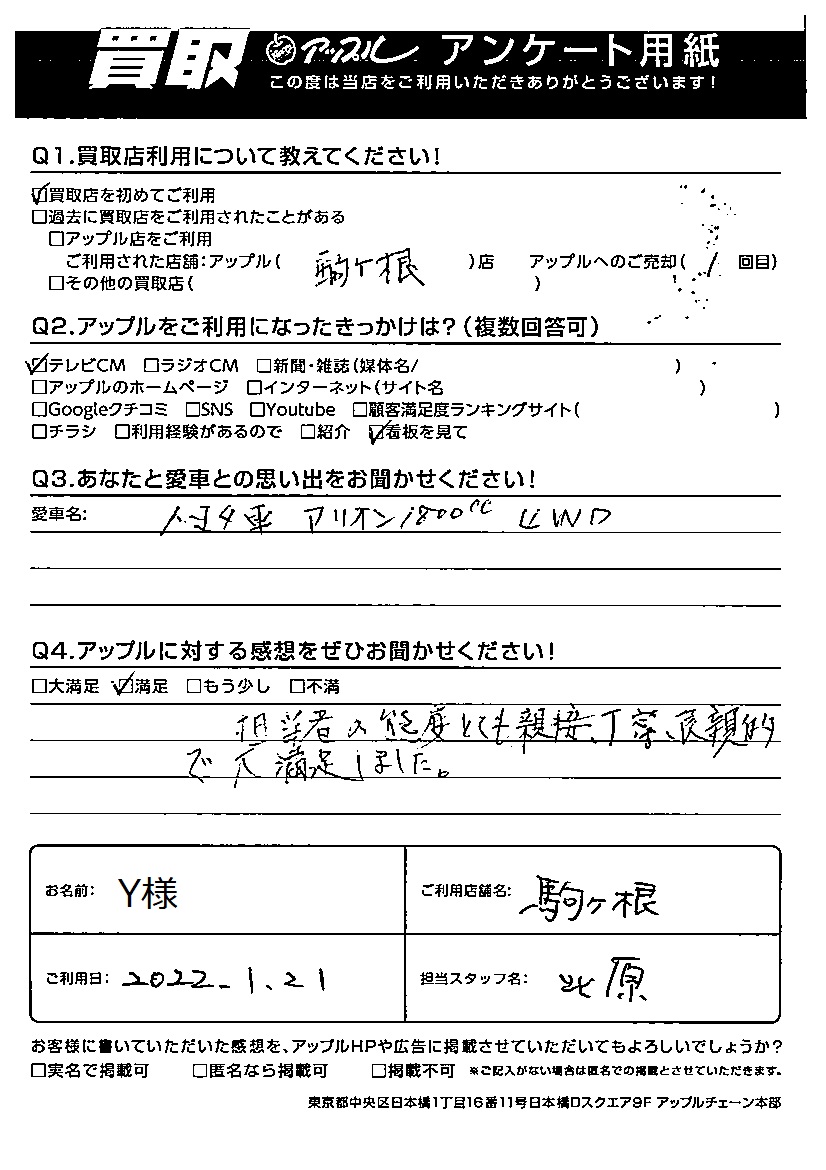 買取 アップル アンケート用紙
この度は当店をご利用いただきありがとうございます!
Q1.買取店利用について教えてください!
☑買取店を初めてご利用
□過去に買取店をご利用されたことがある
□アップル店をご利用
ご利用された店舗:アップル( 駒ヶ根 )店 アップルへのご売却( 1 回目)
□その他の買取店( )
Q2.アップルをご利用になったきっかけは?(複数回答可)
☑テレビCM □ラジオCM □新聞・雑誌(媒体名/ )
□アップルのホームページ □インターネット(サイト名 )
□Googleクチコミ □SNS □Youtube □顧客満足度ランキングサイト( )
□チラシ □利用経験があるので □紹介 ☑看板を見て
Q3.あなたと愛車との思い出をお聞かせください!
愛車名: トヨタ車 アリオン1800cc 4WD
Q4.アップルに対する感想をぜひお聞かせください!
□大満足 ☑満足 □もう少し □不満
担当者の態度とても親接、丁寧、良親的
で大満足しました。
お名前: Y様 ご利用店舗名: 駒ヶ根
ご利用日: 2022.1.21 担当スタッフ名: 北原
お客様に書いていただいた感想を、アップルHPや広告に掲載させていただいてもよろしいでしょうか?
□実名で掲載可 □匿名なら掲載可 □掲載不可 ※ご記入がない場合は匿名での掲載とさせていただきます。
東京都中央区日本橋1丁目16番11号日本橋Dスクエア9F アップルチェーン本部